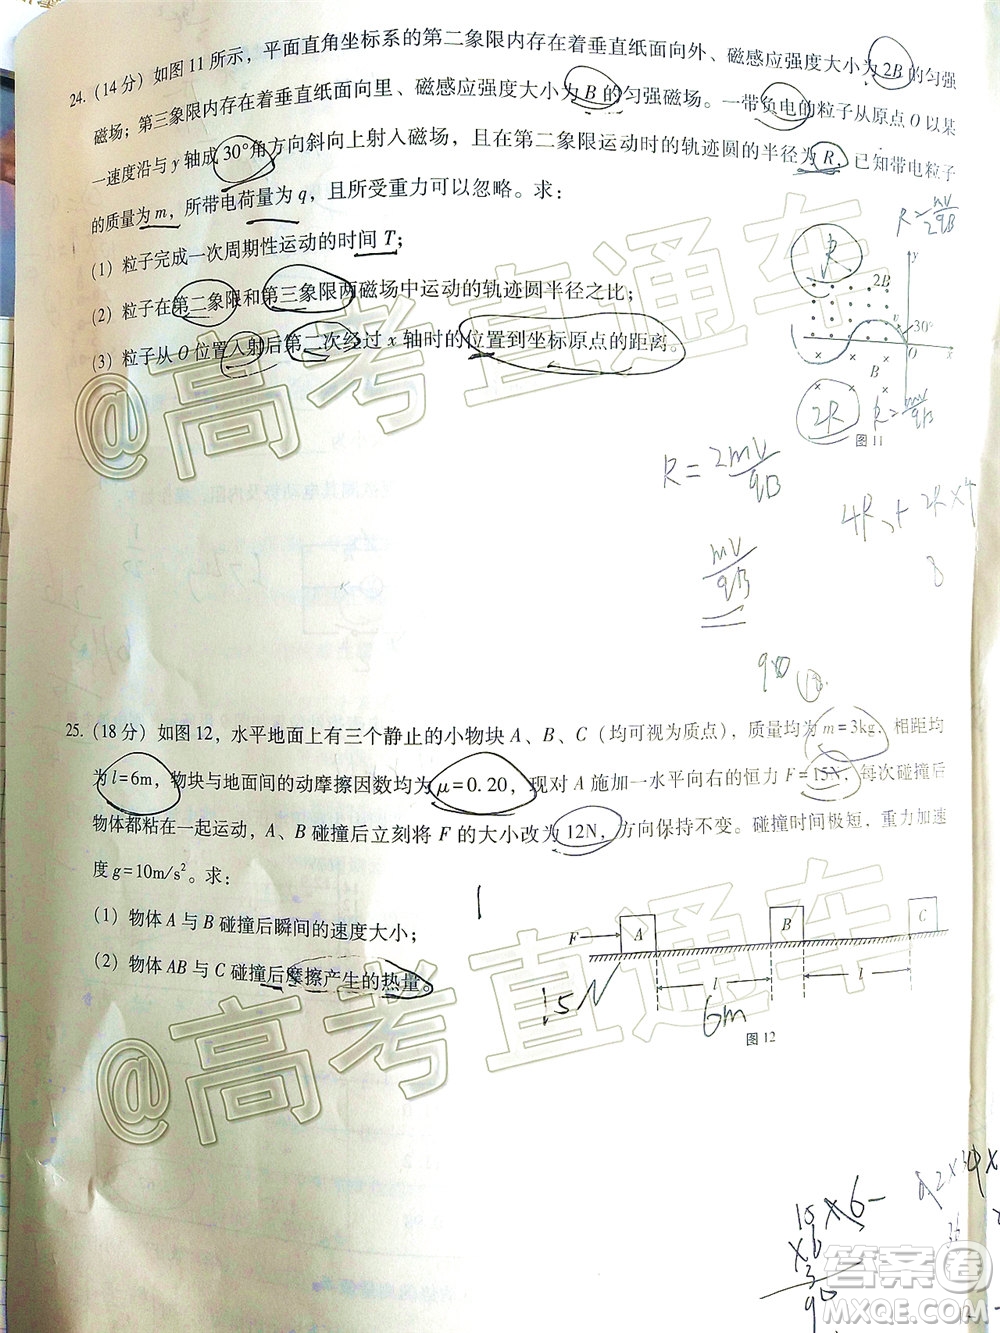 24. (14 分) 如图 11 所示，平面直角坐标系的第二象限内存在着垂直纸面向外、磁感应强度大小为 2B 的匀强
磁场；第三象限内存在着垂直纸面向里、磁感应强度大小为 B 的匀强磁场。一带负电的粒子从原点 O 以某
一速度沿与 y 轴成 30°角方向斜向上射入磁场，且在第二象限运动时的轨迹圆的半径为 R，已知带电粒子
的质量为 m，所带电荷量为 q，且所受重力可以忽略。求：
(1) 粒子完成一次周期性运动的时间 T；
(2) 粒子在第二象限和第三象限两磁场中运动的轨迹圆半径之比；
(3) 粒子从 O 位置入射后第二次经过 x 轴时的位置到坐标原点的距离。
R = mv/2qB
R
y
2B
v
30°
O
x
B
2R
R = mv/qB
图 11
R = 2mv/qB
4R + 2R×4
mv/qB
8
25. (18 分) 如图 12，水平地面上有三个静止的小物块 A、B、C（均可视为质点），质量均为 m=3kg，相距均
为 l=6m，物块与地面间的动摩擦因数均为 μ=0.20，现对 A 施加一水平向右的恒力 F=15N，每次碰撞后
物体都粘在一起运动，A、B 碰撞后立刻将 F 的大小改为 12N，方向保持不变。碰撞时间极短，重力加速
度 g=10m/s²。求：
(1) 物体 A 与 B 碰撞后瞬间的速度大小；
(2) 物体 AB 与 C 碰撞后摩擦产生的热量。
F
A
B
C
l
l
15N
6m
图 12
@高考直通车
@高考直通车
15×6
×6
3
90
答案圈
MXQE.COM